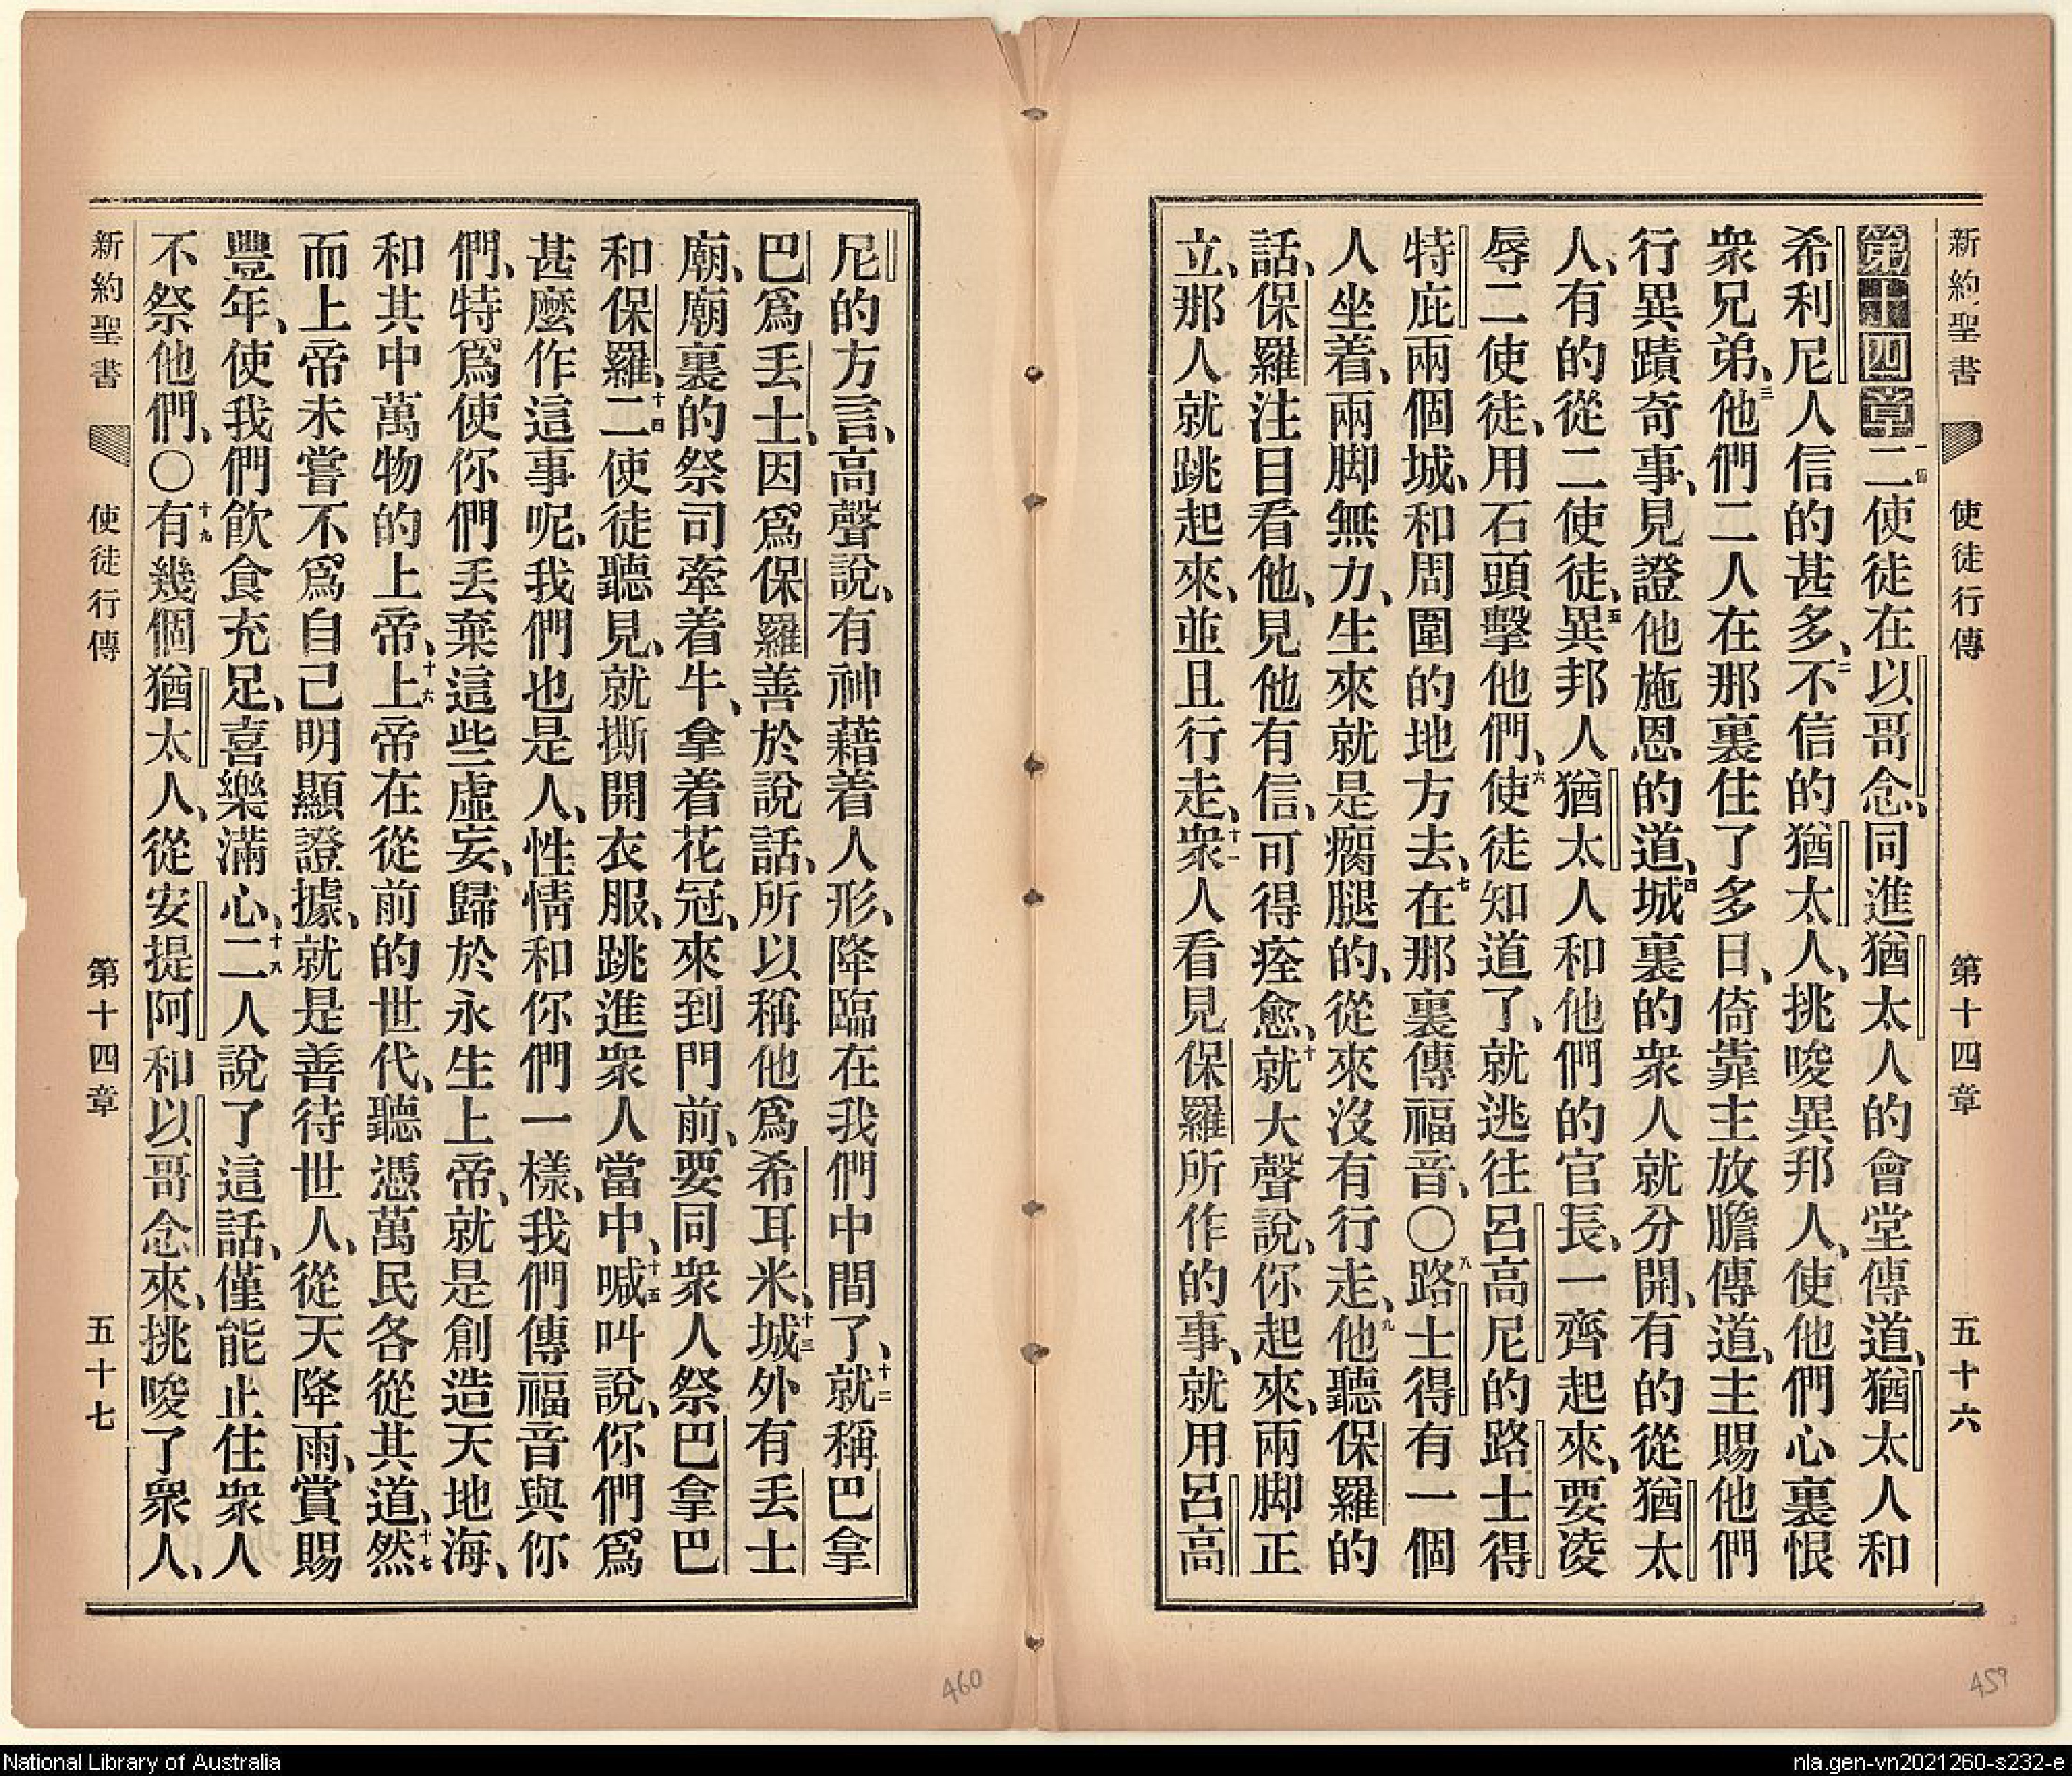 新約聖書 使徒行傳 第十四章 五十六
第十四章 一節二使徒在以哥念、同進猶太人的會堂傳道、猶太人和
希利尼人信的甚多、二不信的猶太人、挑唆異邦人、使他們心裏恨
衆兄弟、三他們二人在那裏住了多日、倚靠主放膽傳道、主賜他們
行異蹟奇事、見證他施恩的道、四城裏的衆人就分開、有的從猶太
人、有的從二使徒、五異邦人猶太人和他們的官長、一齊起來、要凌
辱二使徒、用石頭擊他們、六使徒知道了、就逃往呂高尼的路士得
特庇兩個城、和周圍的地方去、七在那裏傳福音、〇八路士得有一個
人坐着、兩脚無力、生來就是瘸腿的、從來沒有行走、九他聽保羅的
話、保羅注目看他、見他有信、可得痊愈、十就大聲說、你起來、兩脚正
立、那人就跳起來、並且行走、十一衆人看見保羅所作的事、就用呂高
尼的方言、高聲說、有神藉着人形、降臨在我們中間了、十二就稱巴拿
巴爲丟士、因爲保羅善於說話、所以稱他爲希耳米、十三城外有丟士
廟、廟裏的祭司牽着牛、拿着花冠、來到門前、要同衆人祭巴拿巴
和保羅、十四二使徒聽見、就撕開衣服、跳進衆人當中、十五喊叫說、你們爲
甚麼作這事呢、我們也是人、性情和你們一樣、我們傳福音與你
們、特爲使你們丟棄這些虛妄、歸於永生上帝、就是創造天地海、
和其中萬物的上帝、十六上帝在從前的世代、聽憑萬民各從其道、十七然
而上帝未嘗不爲自己明顯證據、就是善待世人、從天降雨、賞賜
豐年、使我們飮食充足、喜樂滿心、十八二人說了這話、僅能止住衆人
不祭他們、〇十九有幾個猶太人、從安提阿和以哥念來、挑唆了衆人、
新約聖書 使徒行傳 第十四章 五十七
460
459
National Library of Australia
nla.gen-vn2021260-s232-e